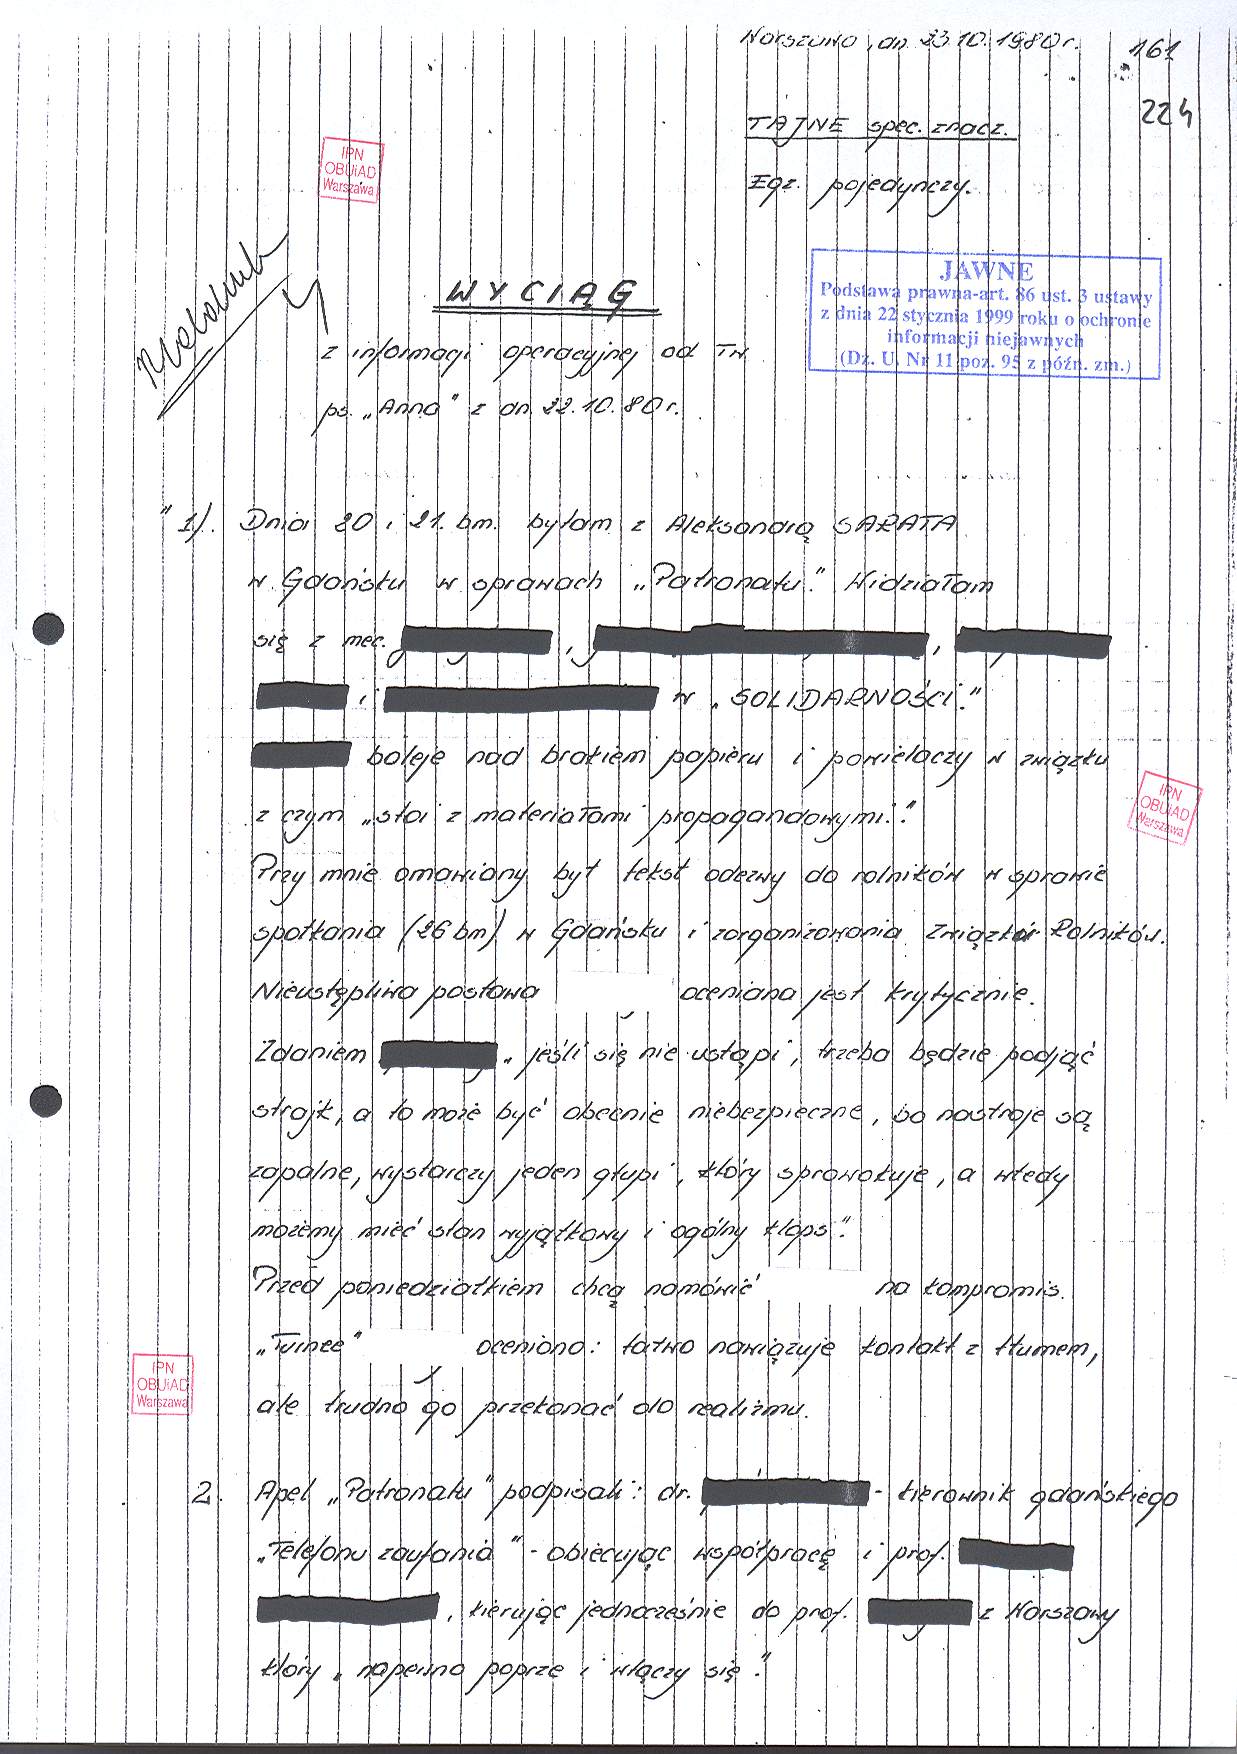 Warszawa, dn. 23.10.1980 r.
161
224
TAJNE spec. znacz.
Egz. pojedynczy.
IPN
OBUiAD
Warszawa
JAWNE
Podstawa prawna-art. 86 ust. 3 ustawy
z dnia 22 stycznia 1999 roku o ochronie
informacji niejawnych
(Dz. U. Nr 11 poz. 95 z późn. zm.)
WYCIĄG
z informacji operacyjnej od TW
ps. „Anna" z dn. 22.10.80 r.
"1/. Dnia 20 i 21. bm. byłam z Aleksandrą SARATA
w Gdańsku w sprawach „Patronatu". Widziałam
się z mec. , ,
i w „SOLIDARNOŚCI".
boleje nad brakiem papieru i powielaczy w związku
z czym „stoi z materiałami propagandowymi".
Przy mnie omawiany był tekst odezwy do rolników w sprawie
spotkania (26 bm) w Gdańsku i zorganizowania Związków Rolników.
Nieustępliwa postawa oceniana jest krytycznie.
Zdaniem „jeśli się nie ustąpi, trzeba będzie podjąć
strajk, a to może być obecnie niebezpieczne, bo nastroje są
zapalne, wystarczy jeden głupi, który sprowokuje, a wtedy
możemy mieć stan wyjątkowy i ogólny klops".
Przed poniedziałkiem chcą namówić na kompromis.
„Turnee" oceniono: łatwo nawiązuje kontakt z tłumem,
ale trudno go przekonać do realizmu.
IPN
OBUiAD
Warszawa
IPN
OBUiAD
Warszawa
2. Apel „Patronatu" podpisali: dr. - kierownik gdańskiego
„Telefonu zaufania" - obiecując współpracę i prof.
, kierując jednocześnie do prof. z Warszawy
który „napewno poprze i włączy się".